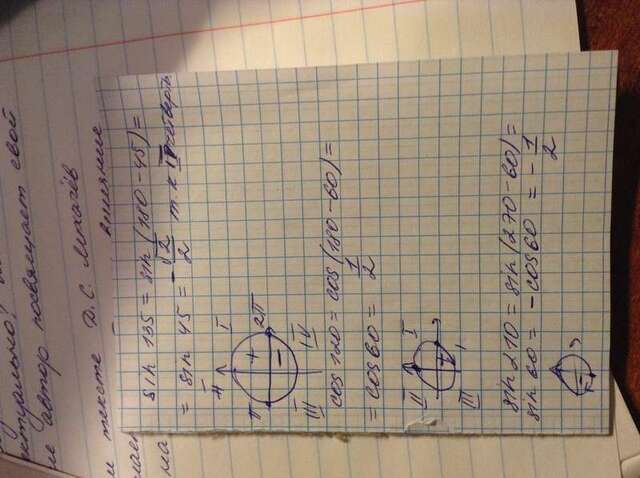 sin 135 = sin (180 - 45) =
= sin 45 = - √2/2 т к IV четверть
II I
π 2π
+
-
III IV
cos 120 = cos (180 - 60) =
= cos 60 = 1/2
II I
III
sin 210 = sin (270 - 60) =
sin 60 = - cos 60 = - 1/2
автор посвящает свой
тексте Д. С. Лихачёв
влияние